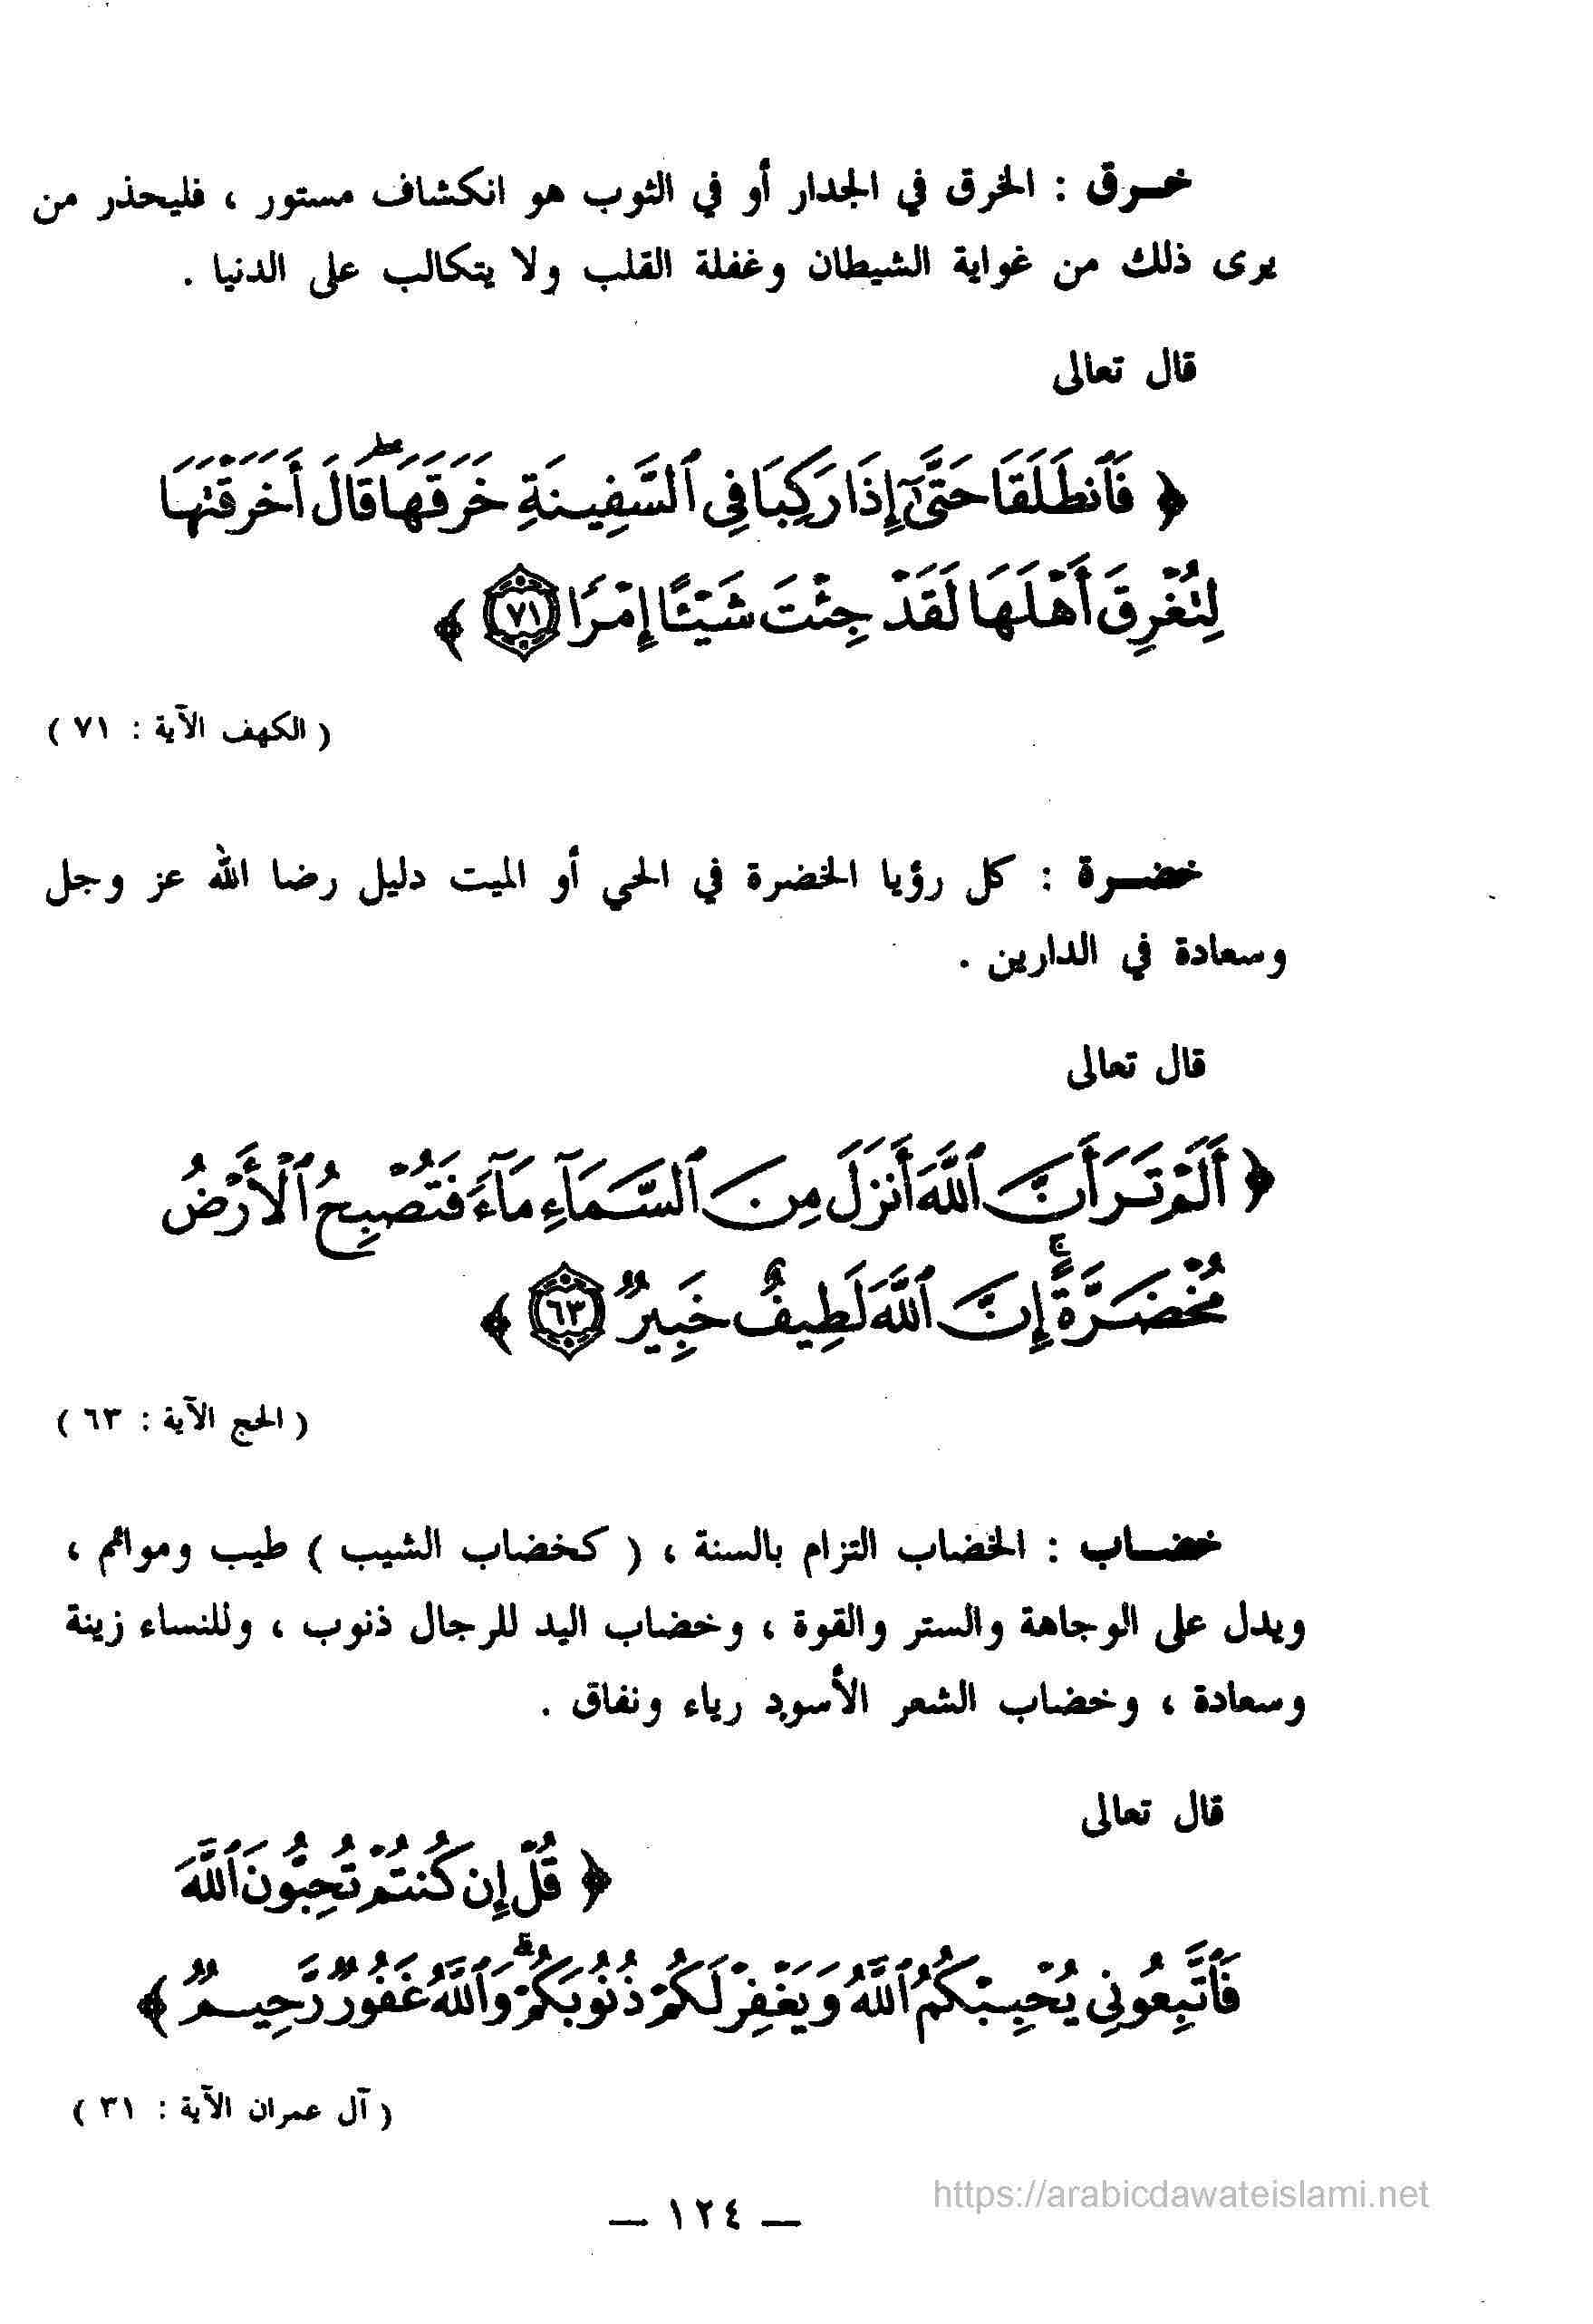 خـرق : الخرق في الجدار أو في الثوب هو انكشاف مستور ، فليحذر من
يرى ذلك من غواية الشيطان وغفلة القلب ولا يتكالب على الدنيا .
قال تعالى
﴿ فَٱنطَلَقَا حَتَّىٰٓ إِذَا رَكِبَا فِي ٱلسَّفِينَةِ خَرَقَهَاۖ قَالَ أَخَرَقْتَهَا
لِتُغْرِقَ أَهْلَهَا لَقَدْ جِئْتَ شَيْـًٔا إِمْرًا ٧١ ﴾
( الكهف الآية : ٧١ )
خضـرة : كل رؤيا الخضرة في الحي أو الميت دليل رضا الله عز وجل
وسعادة في الدارين .
قال تعالى
﴿ أَلَمْ تَرَ أَنَّ ٱللَّهَ أَنزَلَ مِنَ ٱلسَّمَآءِ مَآءً فَتُصْبِحُ ٱلْأَرْضُ
مُخْضَرَّةًۚ إِنَّ ٱللَّهَ لَطِيفٌ خَبِيرٌ ٦٣ ﴾
( الحج الآية : ٦٣ )
خضـاب : الخضاب التزام بالسنة ، ( كخضاب الشيب ) طيب وموائم ،
ويدل على الوجاهة والستر والقوة ، وخضاب اليد للرجال ذنوب ، وللنساء زينة
وسعادة ، وخضاب الشعر الأسود رياء ونفاق .
قال تعالى
﴿ قُلْ إِن كُنتُمْ تُحِبُّونَ ٱللَّهَ
فَٱتَّبِعُونِي يُحْبِبْكُمُ ٱللَّهُ وَيَغْفِرْ لَكُمْ ذُنُوبَكُمْۗ وَٱللَّهُ غَفُورٌ رَّحِيمٌ ﴾
( آل عمران الآية : ٣١ )
— ١٢٤ —
https://arabicdawateislami.net